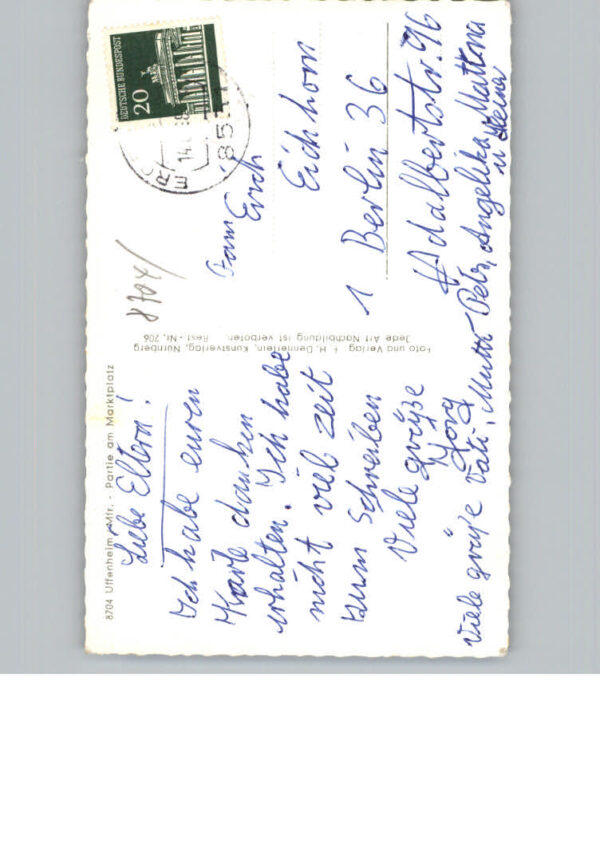 8704 Uffenheim/Mfr. - Partie am Marktplatz
Liebe Eltern!
Ich habe euren
Karte danken
erhalten. Ich habe
nicht viel Zeit
zum Schreiben
Viele grüße
Jörg
Viele grüße Vati, Mutti Petr, Angelika, Mattona
Foto und Verlag: F. H. Dennerlein, Kunstverlag, Nürnberg
Jede Art Nachbildung ist verboten. Best.-Nr. 206
8704/
DEUTSCHE BUNDESPOST
20
14.
85
Fam
Erich
Eichhorn
1 Berlin 36
Adalbertstr. 96